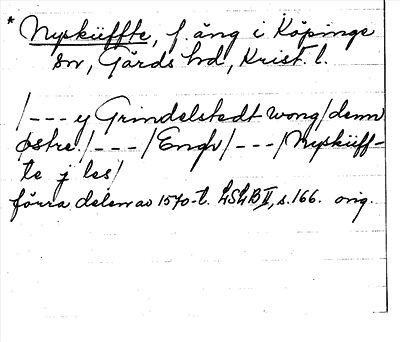 * Nyskiiffte, f. äng i Köpinge
sn, Gärds hd, Krist. l.
/--- y Grindelstedt wong/denn
østre/---/Engh/---/Nyskiiff-
te j les/
förra delen av 1570-t. LSLB II, s. 166. orig.